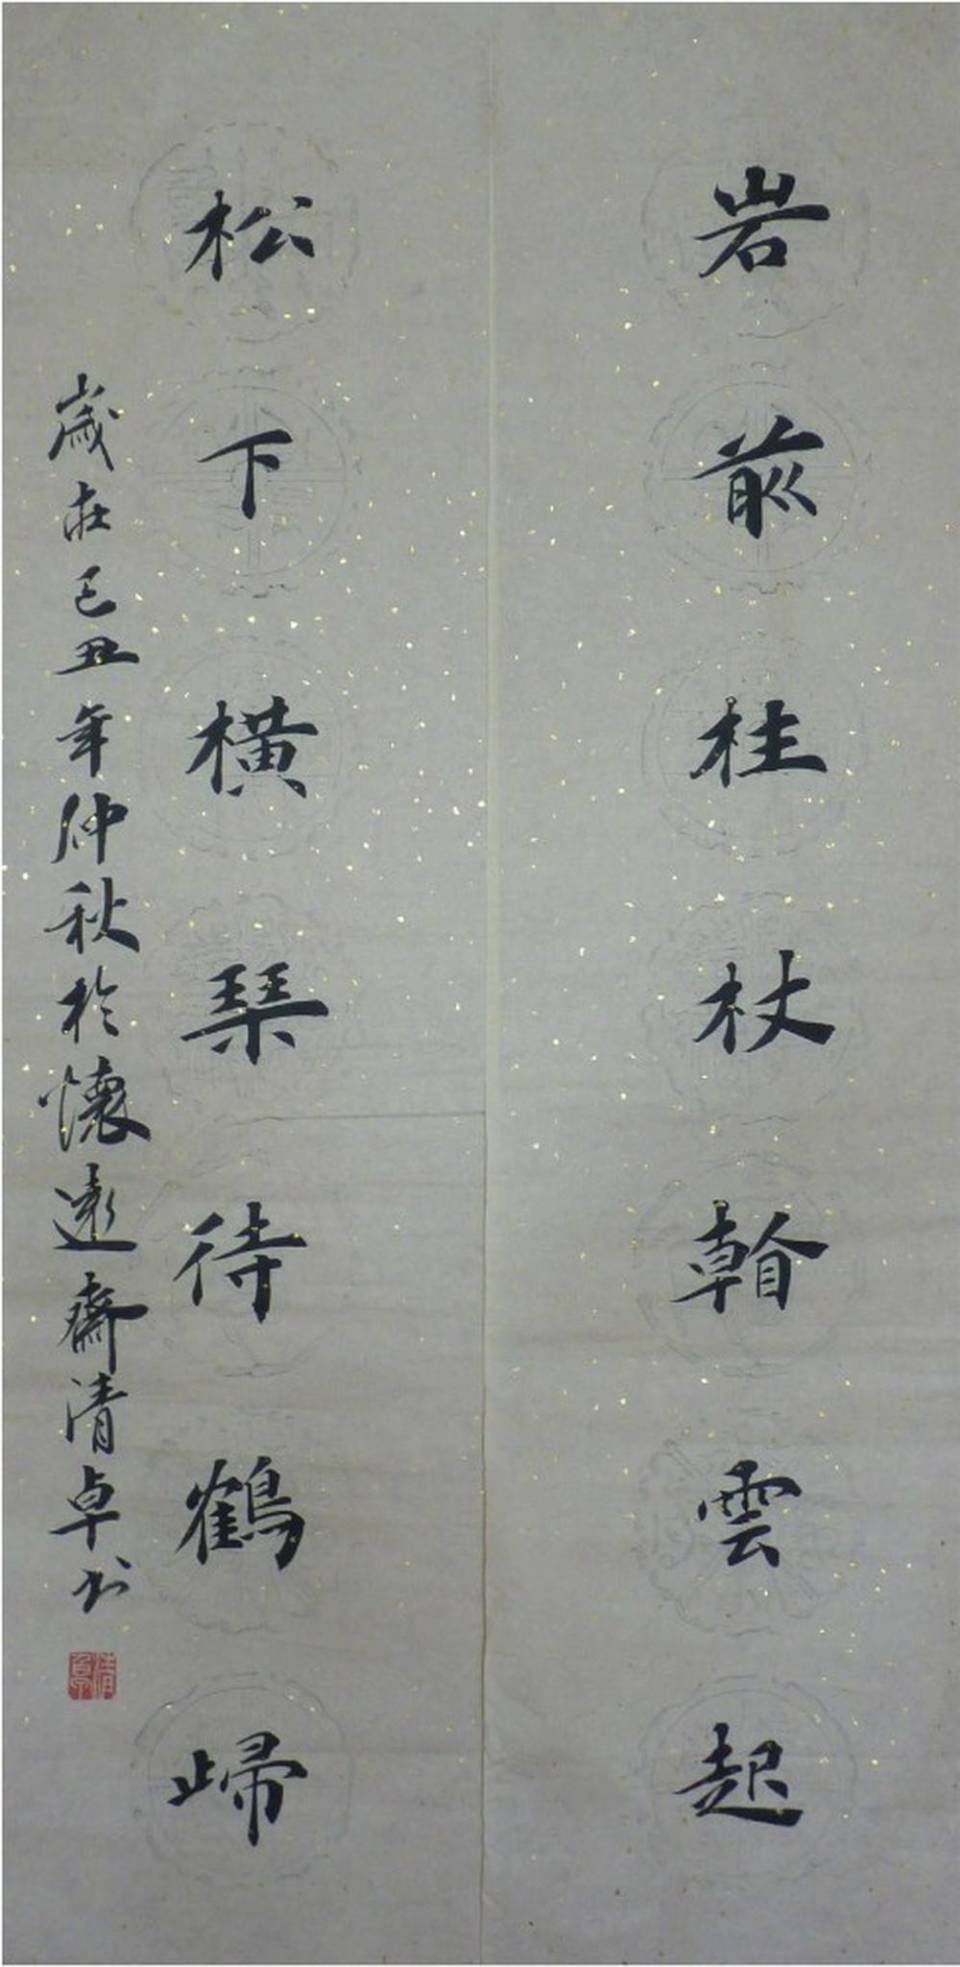 岩前柱杖看雲起
松下橫琴待鶴歸
歲在己丑年仲秋於懷遠齋清卓书